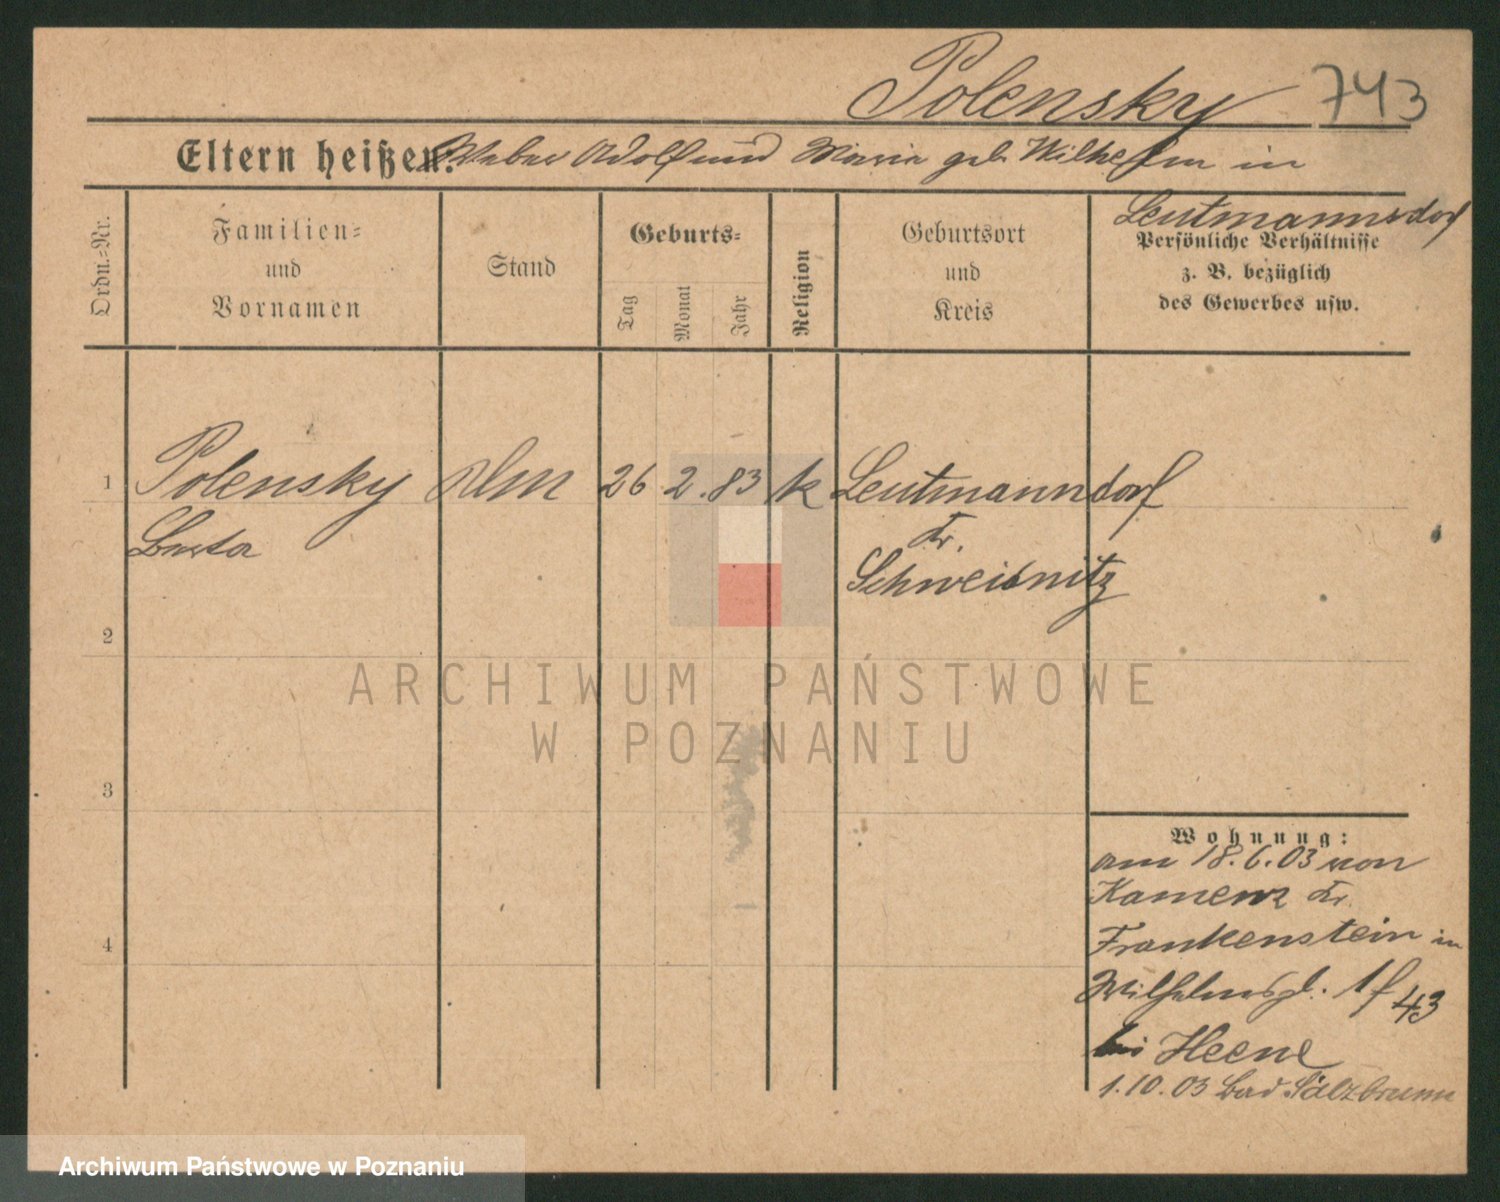 Polensky 743
Eltern heißen: Weber Adolf und Maria geb. Wilhelm in
Leutmannsdorf
Ordn.-Nr.
Familien-
und
Vornamen
Stand
Geburts-
Tag
Monat
Jahr
Religion
Geburtsort
und
Kreis
Persönliche Verhältnisse
z. B. bezüglich
des Gewerbes usw.
1 Polensky 26 2. 83 k Leutmanndorf
Kr.
Schweidnitz
2
3
4
Wohnung:
am 18.6.03 von
Kamenz Kr.
Frankenstein in
Wilhelmspl. 1 f 43
bei Heene
1.10.03 Bad Salzbrunn
ARCHIWUM PAŃSTWOWE
W POZNANIU
Archiwum Państwowe w Poznaniu